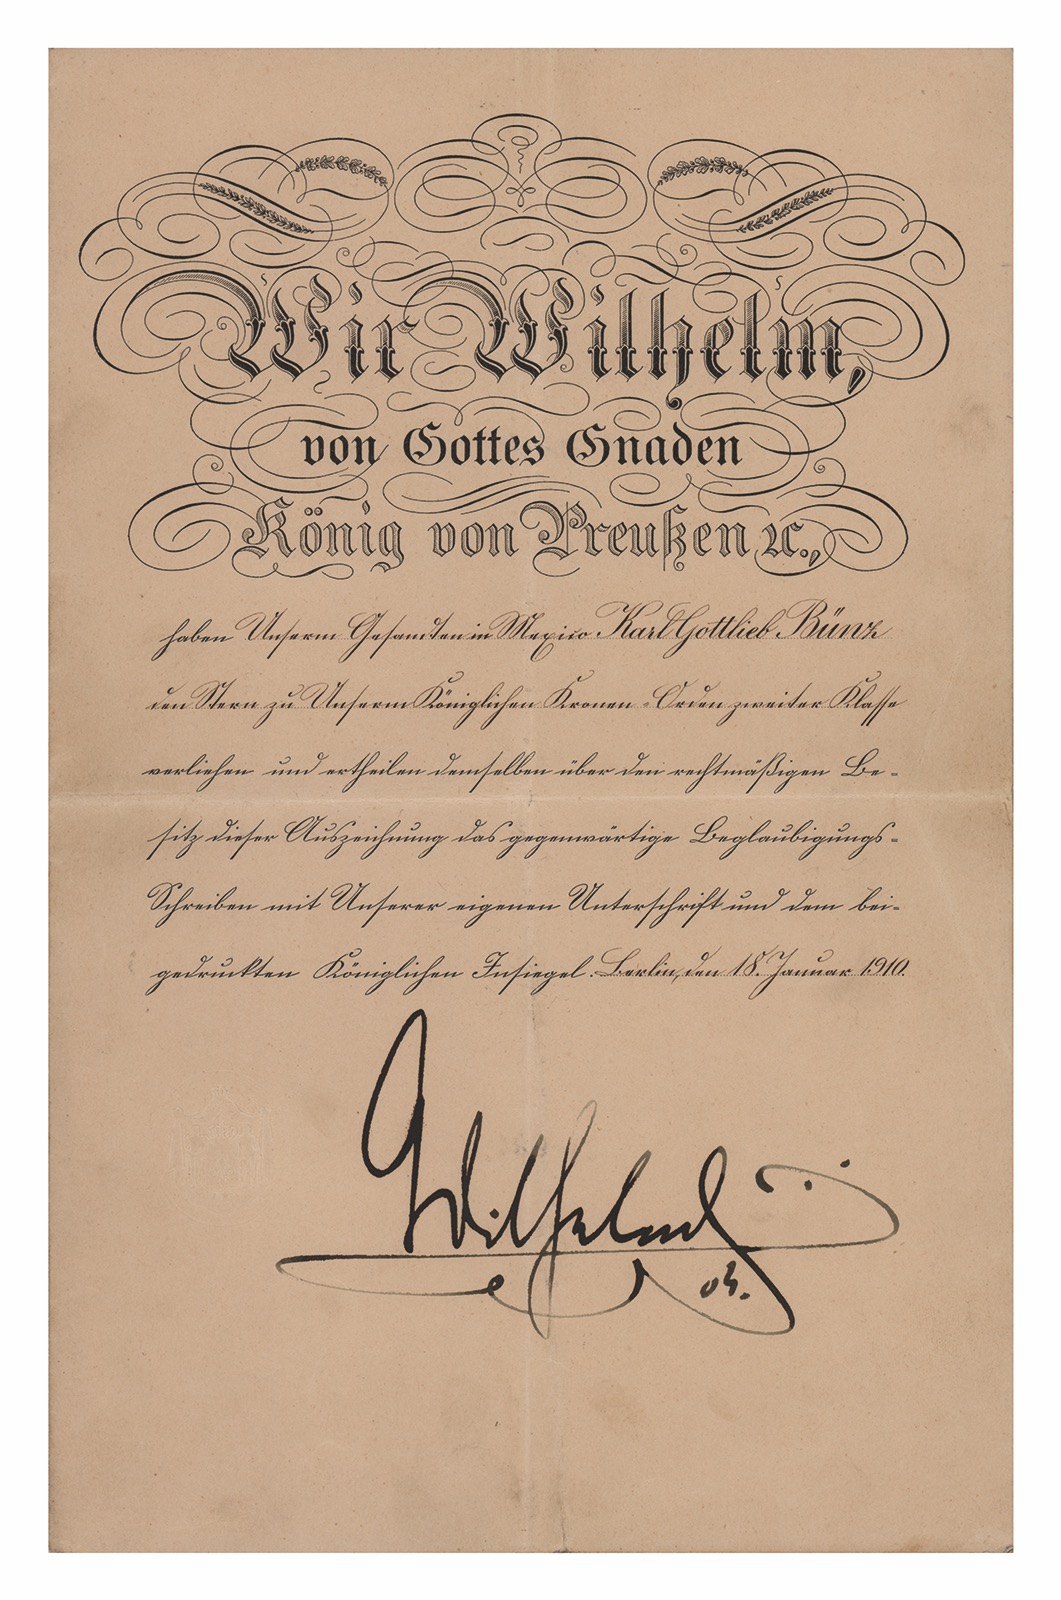 Wir Wilhelm,
von Gottes Gnaden
König von Preußen ꝛc.,
haben Unserm Gesandten in Mexico Karl Gottlieb Bünz
den Stern zu Unserm Königlichen Kronen-Orden zweiter Klasse
verliehen und ertheilen demselben über den rechtmäßigen Be-
sitz dieser Auszeichnung das gegenwärtige Beglaubigungs-
Schreiben mit Unserer eigenen Unterschrift und dem bei-
gedruckten Königlichen Insiegel. Berlin, den 18. Januar 1910.
Wilhelm